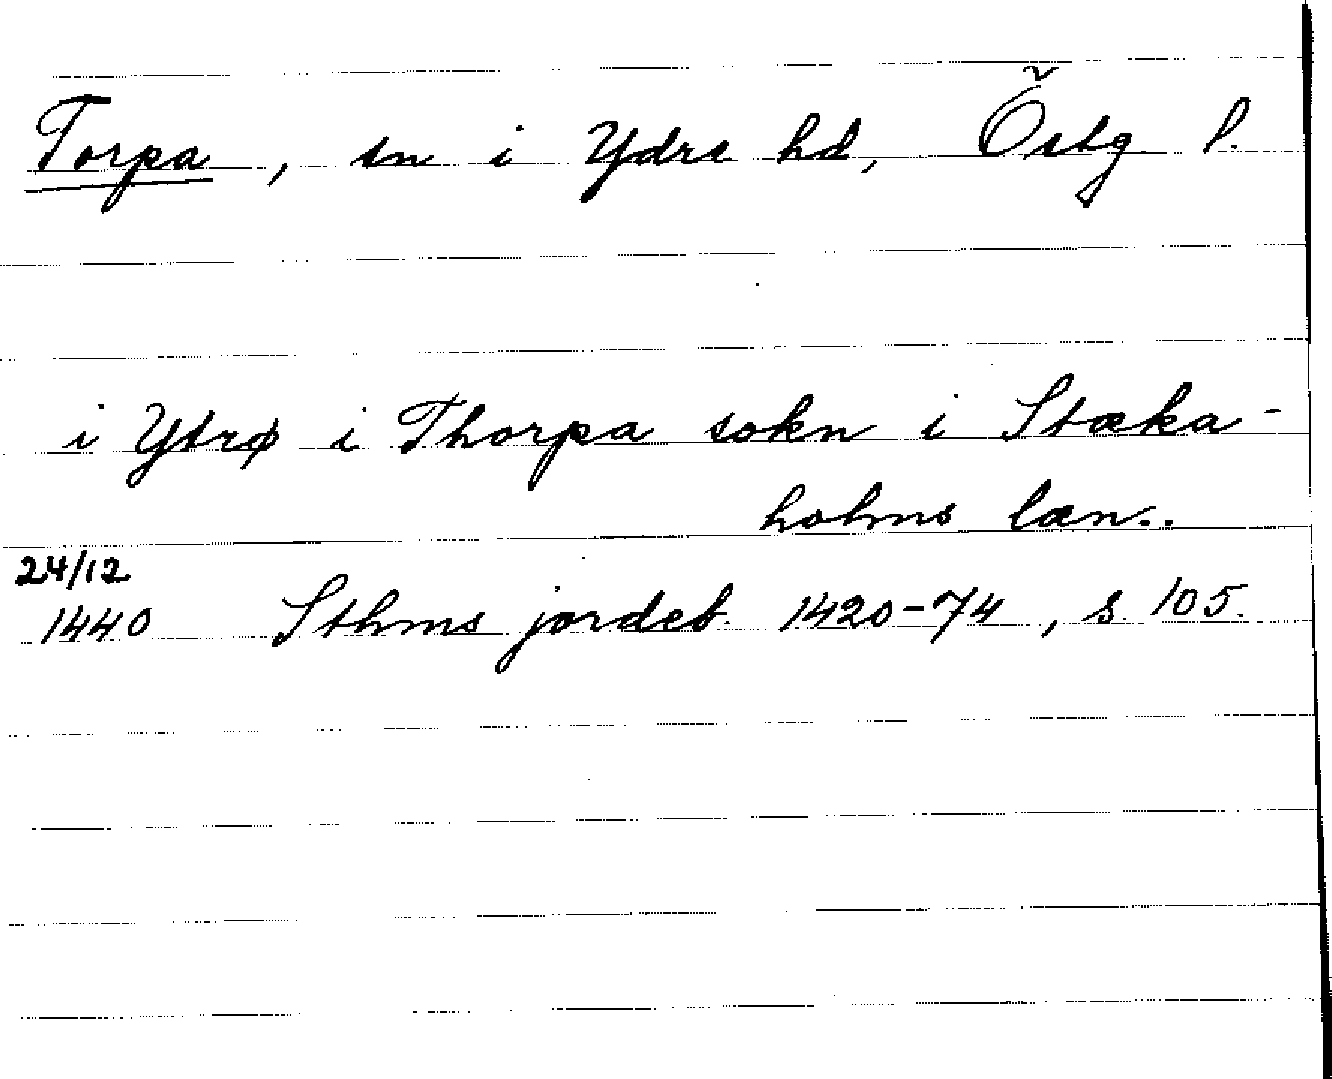 Torpa, sn i Ydre hd, Östg l.
i Ytrø i Thorpa sokn i Stæka-
holms læn..
24/12
1440 Sthms jordeb. 1420-74, s. 105.